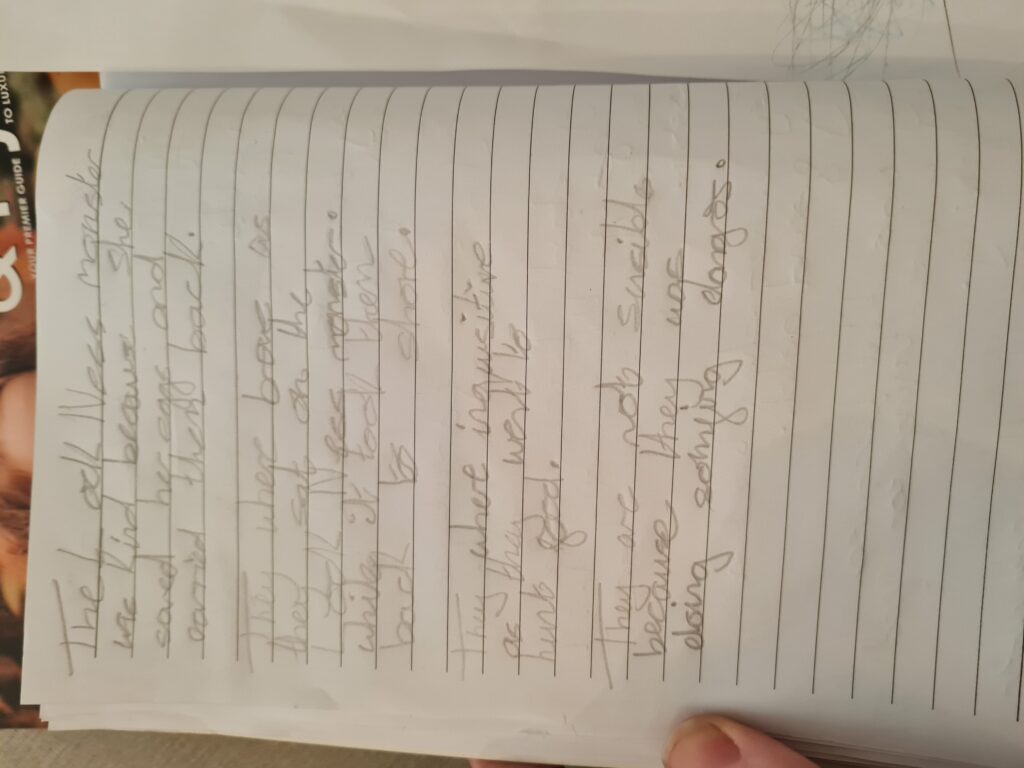 The Lock Ness manster
was kind because she,
saved her eggs and
back.
They wher boas as
they sat on the
Lock Ness
while it took them
back to shore.
They where inqusitive
as they went to
hunt fod.
They are not sncible
because they was
doing somjing dangs.
PREMIER GUIDE
TO LUXU